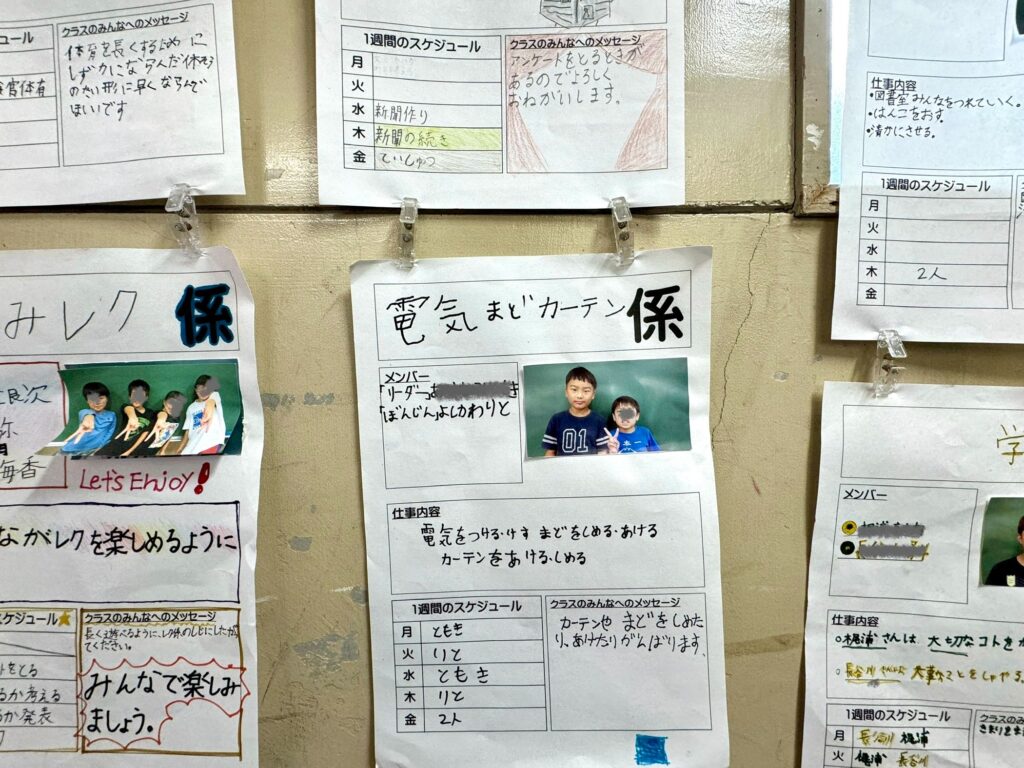 ュール
クラスのみんなへのメッセージ
体育を長くするために
しずかにならんだ休そう
のたい形に早くならんで
ほしいです
1週間のスケジュール
月
火
水 新聞作り
木 新聞の続き
金 ていしゅつ
クラスのみんなへのメッセージ
アンケートをとるときが
あるのでよろしく
おねがいします。
仕事内容
・図書室みんなをつれていく。
・はんこをおす。
・清かにさせる。
1週間のスケジュール
月
火
水
木 2人
金
みレク 係
良次
弥
海香
Let's Enjoy!
ながレクを楽しめるように
スケジュール
をとる
るか考える
るか発表
クラスのみんなへのメッセージ
長く遊べるように、レク係のしじにしたが
てください。
みんなで楽しみ
ましょう。
電気まどカーテン係
メンバー
「リーダー」
「ぼんじん」よしかわりと
01
仕事内容
電気をつける・けす まどをしめる・あける
カーテンをあける・しめる
1週間のスケジュール
月 ともき
火 りと
水 ともき
木 りと
金 2人
クラスのみんなへのメッセージ
カーテンや まどをしめた
り、あけたりがんばります。
学
メンバー
仕事内容
○梶浦さんは 大切なコトを
○長谷川さんは 大事なことを
1週間のスケジュール
月 長谷川 梶浦
火 梶浦 長谷川
クラスのみ